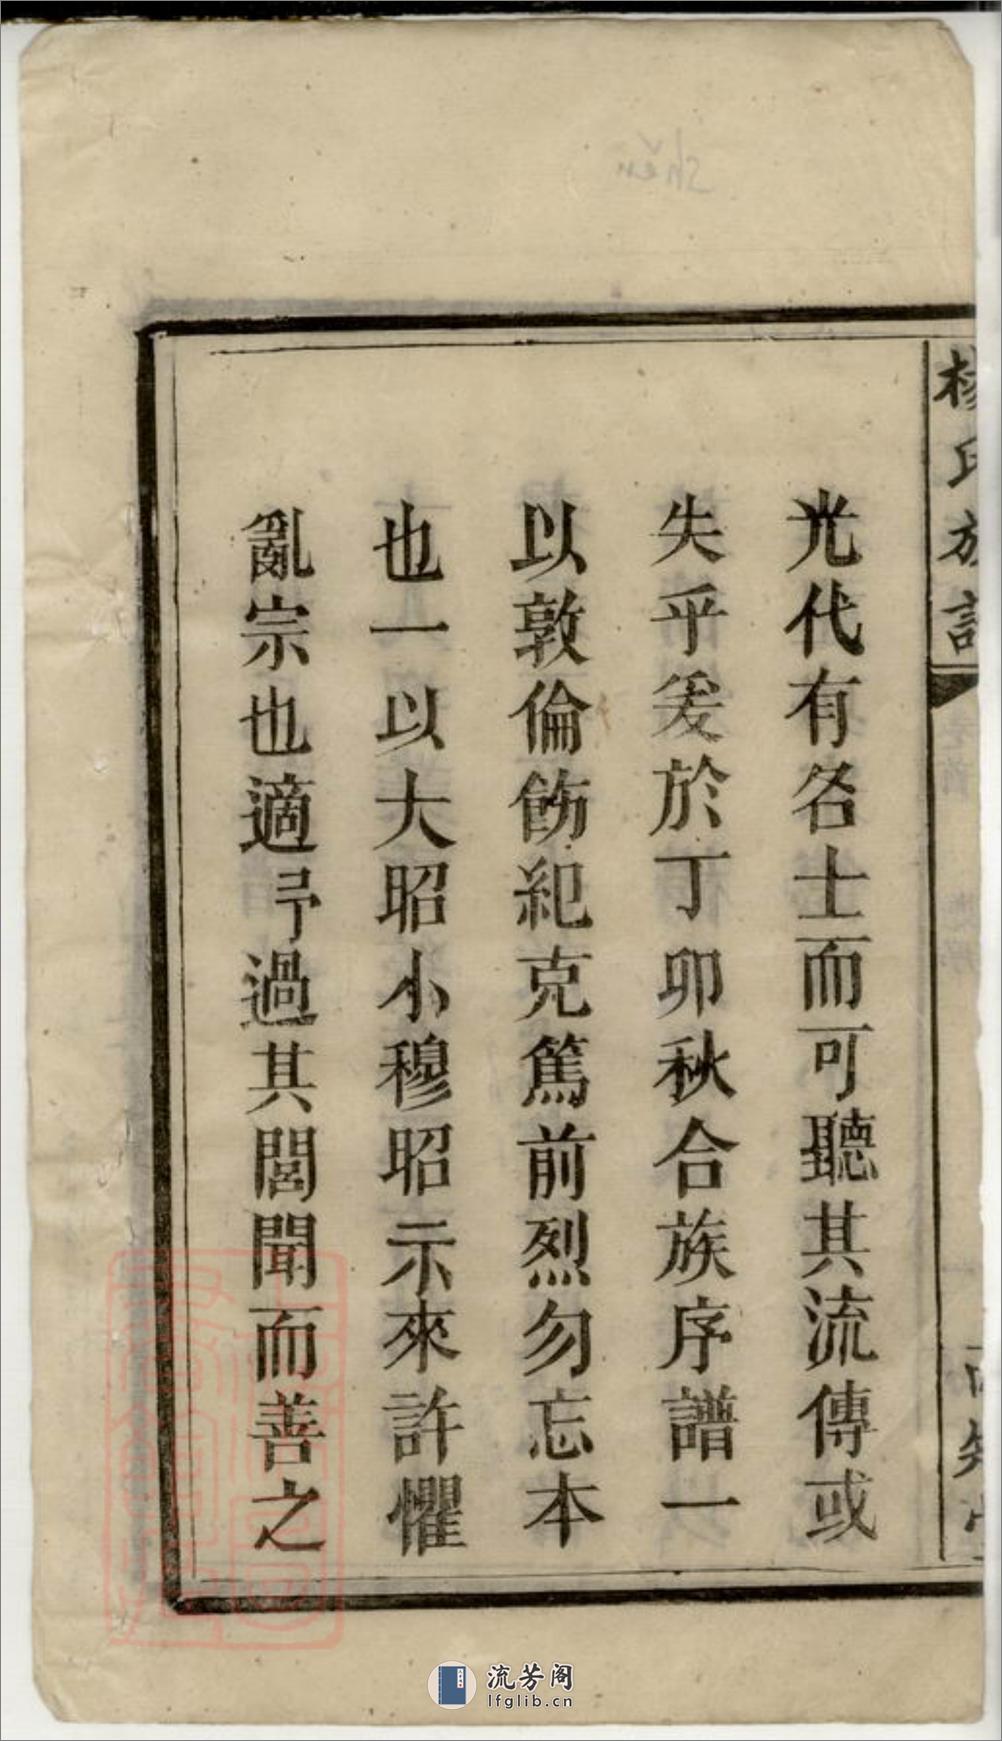 楊氏族譜
光代有名士而可聽其流傳或
失乎爰於丁卯秋合族序譜一
以敦倫飭紀克篤前烈勿忘本
也一以大昭小穆昭示來許懼
亂宗也適予過其閭聞而善之
shěn
流芳阁
lfglib.cn